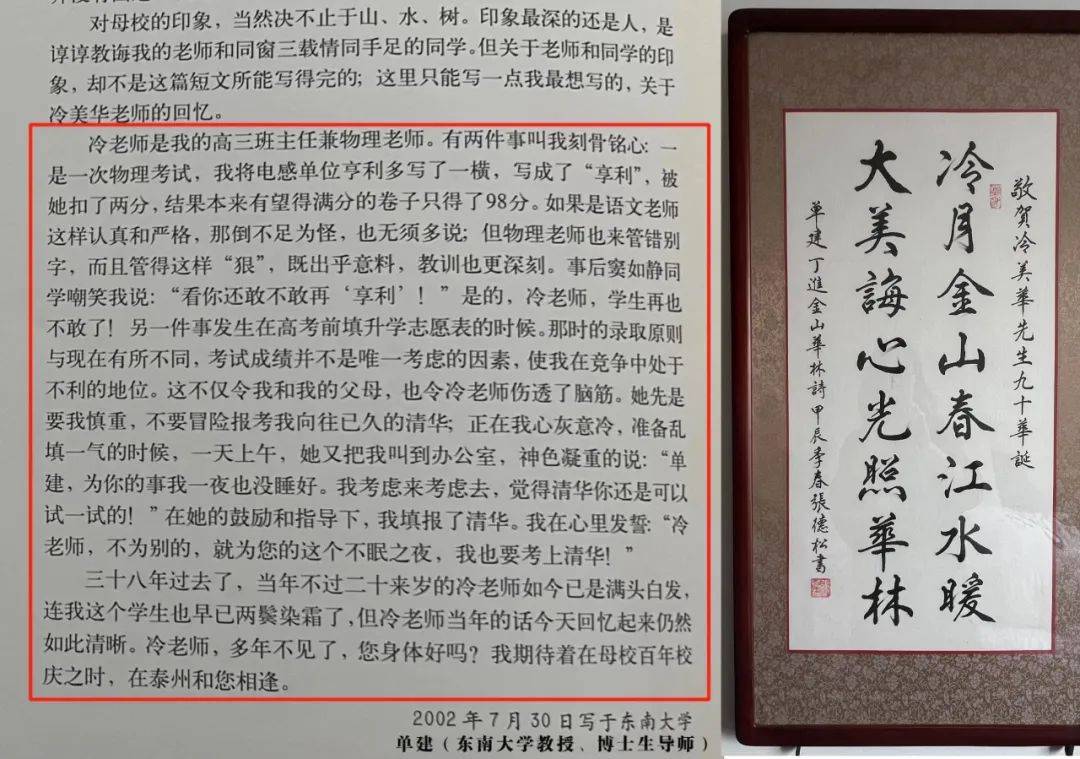 对母校的印象，当然决不止于山、水、树。印象最深的还是人，是
谆谆教诲我的老师和同窗三载情同手足的同学。但关于老师和同学的印
象，却不是这篇短文所能写得完的；这里只能写一点我最想写的，关于
冷美华老师的回忆。
冷老师是我的高三班主任兼物理老师。有两件事叫我刻骨铭心：一
是一次物理考试，我将电感单位亨利多写了一横，写成了“享利”，被
她扣了两分，结果本来有望得满分的卷子只得了98分。如果是语文老师
这样认真和严格，那倒不足为怪，也无须多说；但物理老师也来管错别
字，而且管得这样“狠”，既出乎意料，教训也更深刻。事后窦如静同
学嘲笑我说：“看你还敢不敢再‘享利’！”是的，冷老师，学生再也
不敢了！另一件事发生在高考前填升学志愿表的时候。那时的录取原则
与现在有所不同，考试成绩并不是唯一考虑的因素，使我在竞争中处于
不利的地位。这不仅令我和我的父母，也令冷老师伤透了脑筋。她先是
要我慎重，不要冒险报考我向往已久的清华；正在我心灰意冷，准备乱
填一气的时候，一天上午，她又把我叫到办公室，神色凝重的说：“单
建，为你的事我一夜也没睡好。我考虑来考虑去，觉得清华你还是可以
试一试的！”在她的鼓励和指导下，我填报了清华。我在心里发誓：“冷
老师，不为别的，就为您的这个不眠之夜，我也要考上清华！”
三十八年过去了，当年不过二十来岁的冷老师如今已是满头白发，
连我这个学生也早已两鬓染霜了，但冷老师当年的话今天回忆起来仍然
如此清晰。冷老师，多年不见了，您身体好吗？我期待着在母校百年校
庆之时，在泰州和您相逢。
2002年7月30日写于东南大学
单建（东南大学教授、博士生导师）
敬贺冷美華先生九十華誕
冷月金山春江水暖
大美誨心光照華林
单建丁進金山華林詩甲辰季春張德松書